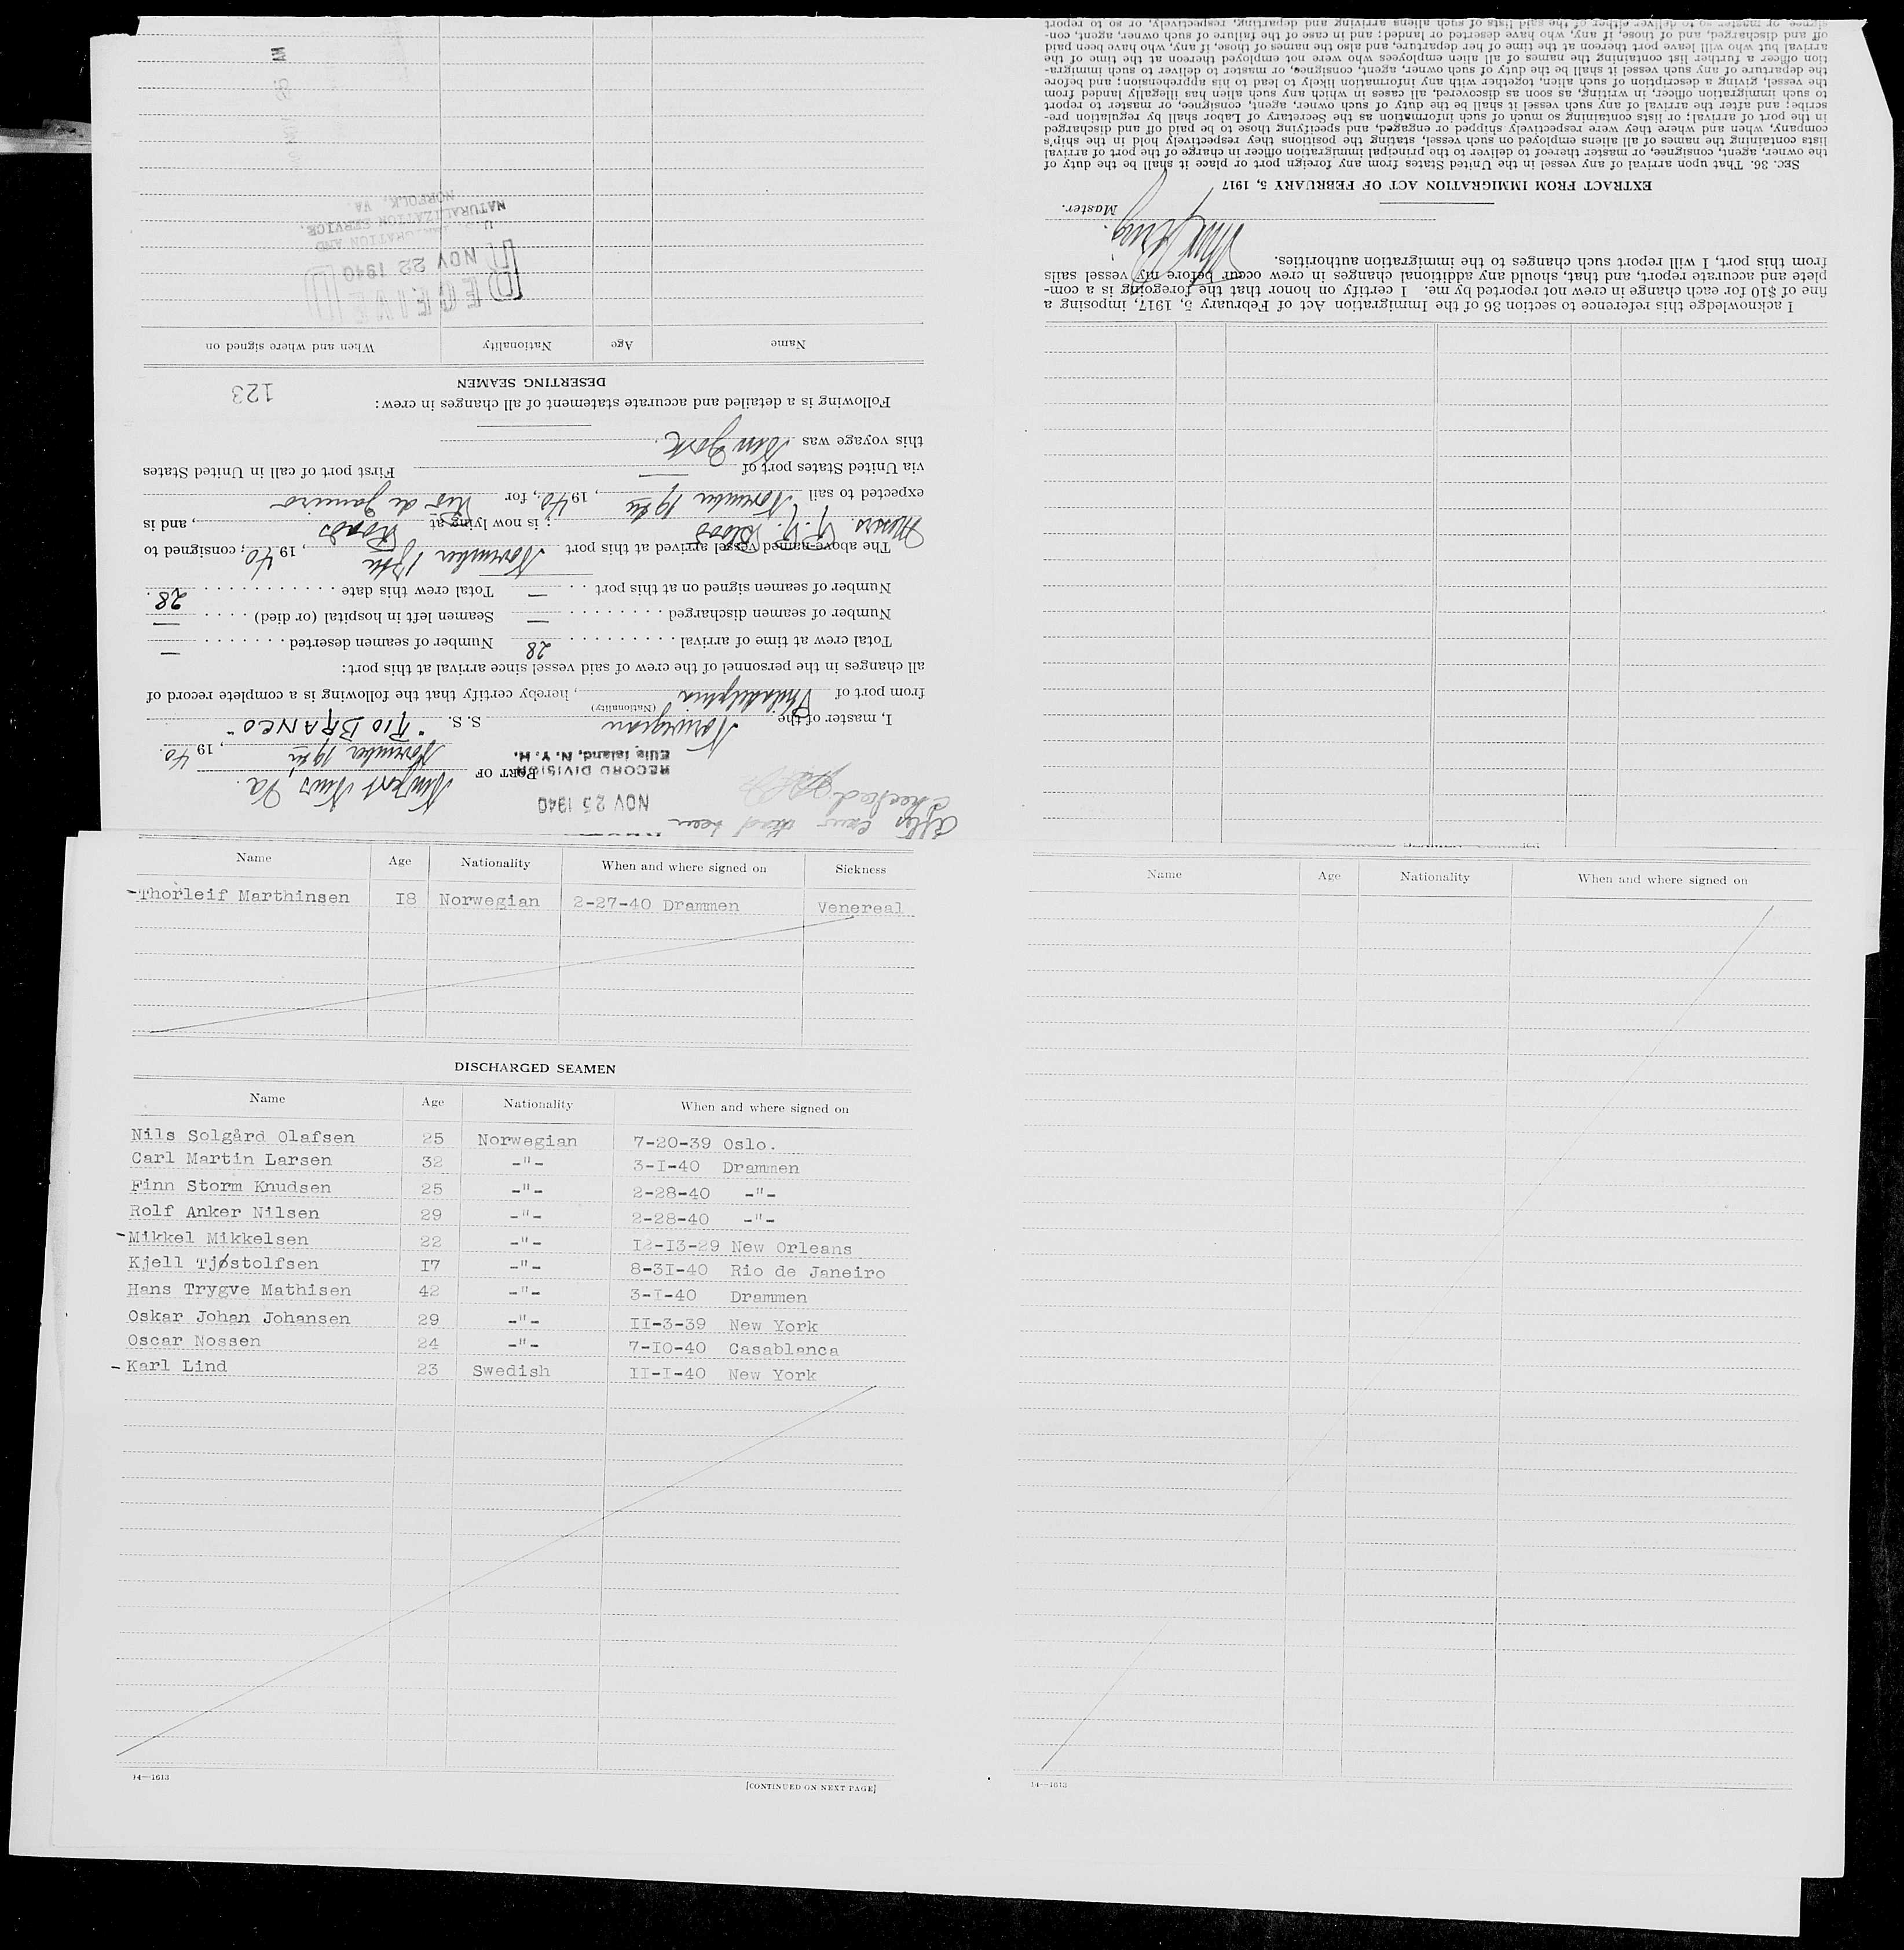 after crew had been
checked
NOV 25 1940
RECORD DIVISION
Ellis Island, N. Y. H.
PORT OF Newport News Va.
November 19th, 1940.
I, master of the Norwegian S. S. "RIO BRANCO"
(Nationality)
from port of Philadelphia, hereby certify that the following is a complete record of
all changes in the personnel of the crew of said vessel since arrival at this port:
Total crew at time of arrival . . . . . . . . . . 28 Number of seamen deserted . . . . . . . . —
Number of seamen discharged . . . . . . . . — Seamen left in hospital (or died) . . . . . —
Number of seamen signed on at this port . . — Total crew this date . . . . . . . . . . . . . 28.
The above-named vessel arrived at this port November 13th, 1940; consigned to
Messrs. Roads; is now lying at, and is
expected to sail November 19th, 1940, for Rio de Janeiro
via United States port of — First port of call in United States
this voyage was New York.
Following is a detailed and accurate statement of all changes in crew:
123
DESERTING SEAMEN
Name Age Nationality When and where signed on
RECEIVED
NOV 22 1940
U. S. IMMIGRATION AND
NATURALIZATION SERVICE.
NORFOLK, VA.
I acknowledge this reference to section 36 of the Immigration Act of February 5, 1917, imposing a
fine of $10 for each change in crew not reported by me. I certify on honor that the foregoing is a com-
plete and accurate report, and that, should any additional changes in crew occur before my vessel sails
from this port, I will report such changes to the immigration authorities.
Master.
EXTRACT FROM IMMIGRATION ACT OF FEBRUARY 5, 1917
SEC. 36. That upon arrival of any vessel in the United States from any foreign port or place it shall be the duty of
the owner, agent, consignee, or master thereof to deliver to the principal immigration officer in charge of the port of arrival
lists containing the names of all aliens employed on such vessel, stating the positions they respectively hold in the ship's
company, when and where they were respectively shipped or engaged, and specifying those to be paid off and discharged
in the port of arrival; or lists containing so much of such information as the Secretary of Labor shall by regulation pre-
scribe; and after the arrival of any such vessel it shall be the duty of such owner, agent, consignee, or master to report
to such immigration officer, in writing, as soon as discovered, all cases in which any such alien has illegally landed from
the vessel, giving a description of such alien, together with any information likely to lead to his apprehension; and before
the departure of any such vessel it shall be the duty of such owner, agent, consignee, or master to deliver to such immigra-
tion officer a further list containing the names of all alien employees who were not employed thereon at the time of the
arrival but who will leave port thereon at the time of her departure, and also the names of those, if any, who have been paid
off and discharged, and of those, if any, who have deserted or landed; and in case of the failure of such owner, agent, con-
signee, or master so to deliver either of the said lists of such aliens arriving and departing, respectively, or so to report
Name Age Nationality When and where signed on Sickness
-Thorleif Marthinsen I8 Norwegian 2-27-40 Drammen Venereal
DISCHARGED SEAMEN
Name Age Nationality When and where signed on
Nils Solgård Olafsen 25 Norwegian 7-20-39 Oslo.
Carl Martin Larsen 32 -"- 3-I-40 Drammen
Finn Storm Knudsen 25 -"- 2-28-40 -"-
Rolf Anker Nilsen 29 -"- 2-28-40 -"-
-Mikkel Mikkelsen 22 -"- I2-I3-29 New Orleans
Kjell Tjøstolfsen I7 -"- 8-3I-40 Rio de Janeiro
Hans Trygve Mathisen 42 -"- 3-I-40 Drammen
Oskar Johan Johansen 29 -"- II-3-39 New York
Oscar Nossen 24 -"- 7-I0-40 Casablanca
-Karl Lind 23 Swedish II-I-40 New York
14—1613
[CONTINUED ON NEXT PAGE]
Name Age Nationality When and where signed on
14—1613